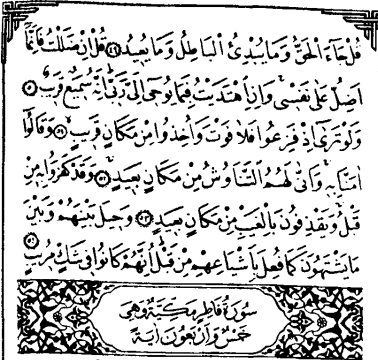 قُلْ جَاءَ الْحَقُّ وَمَا يُبْدِئُ الْبَاطِلُ وَمَا يُعِيدُ ﴿٤٩﴾ قُلْ إِنْ ضَلَلْتُ فَإِنَّمَا
أَضِلُّ عَلَى نَفْسِي وَإِنِ اهْتَدَيْتُ فَبِمَا يُوحِي إِلَيَّ رَبِّي إِنَّهُ سَمِيعٌ قَرِيبٌ ﴿٥٠﴾
وَلَوْ تَرَى إِذْ فَزِعُوا فَلَا فَوْتَ وَأُخِذُوا مِنْ مَكَانٍ قَرِيبٍ ﴿٥١﴾ وَقَالُوا
آمَنَّا بِهِ وَأَنَّى لَهُمُ التَّنَاوُشُ مِنْ مَكَانٍ بَعِيدٍ ﴿٥٢﴾ وَقَدْ كَفَرُوا بِهِ مِنْ
قَبْلُ وَيَقْذِفُونَ بِالْغَيْبِ مِنْ مَكَانٍ بَعِيدٍ ﴿٥٣﴾ وَحِيلَ بَيْنَهُمْ وَبَيْنَ
مَا يَشْتَهُونَ كَمَا فُعِلَ بِأَشْيَاعِهِمْ مِنْ قَبْلُ إِنَّهُمْ كَانُوا فِي شَكٍّ مُرِيبٍ ﴿٥٤﴾
سُورَةُ فَاطِرٍ مَكِّيَّةٌ وَهِيَ
خَمْسٌ وَأَرْبَعُونَ آيَةً